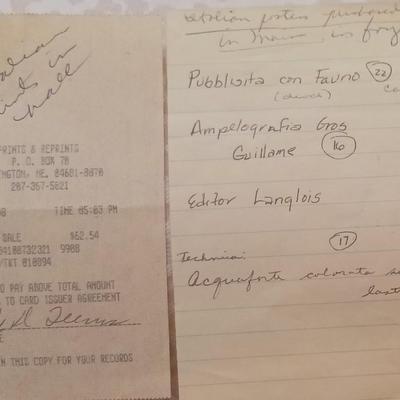 in
hall
PRINTS & REPRINTS
P. O. BOX 70
INGTON, ME. 04681-0070
207-367-5821
TIME 05:03 PM
SALE $62.54
34100732321 9908
/TKT 010894
O PAY ABOVE TOTAL AMOUNT
TO CARD ISSUER AGREEMENT
N THIS COPY FOR YOUR RECORDS
in
Pubblicita con Fauno 22
Ampelografia Gros
Guillame 16
Editor Langlois
17
Technica:
Acquaforte colorata